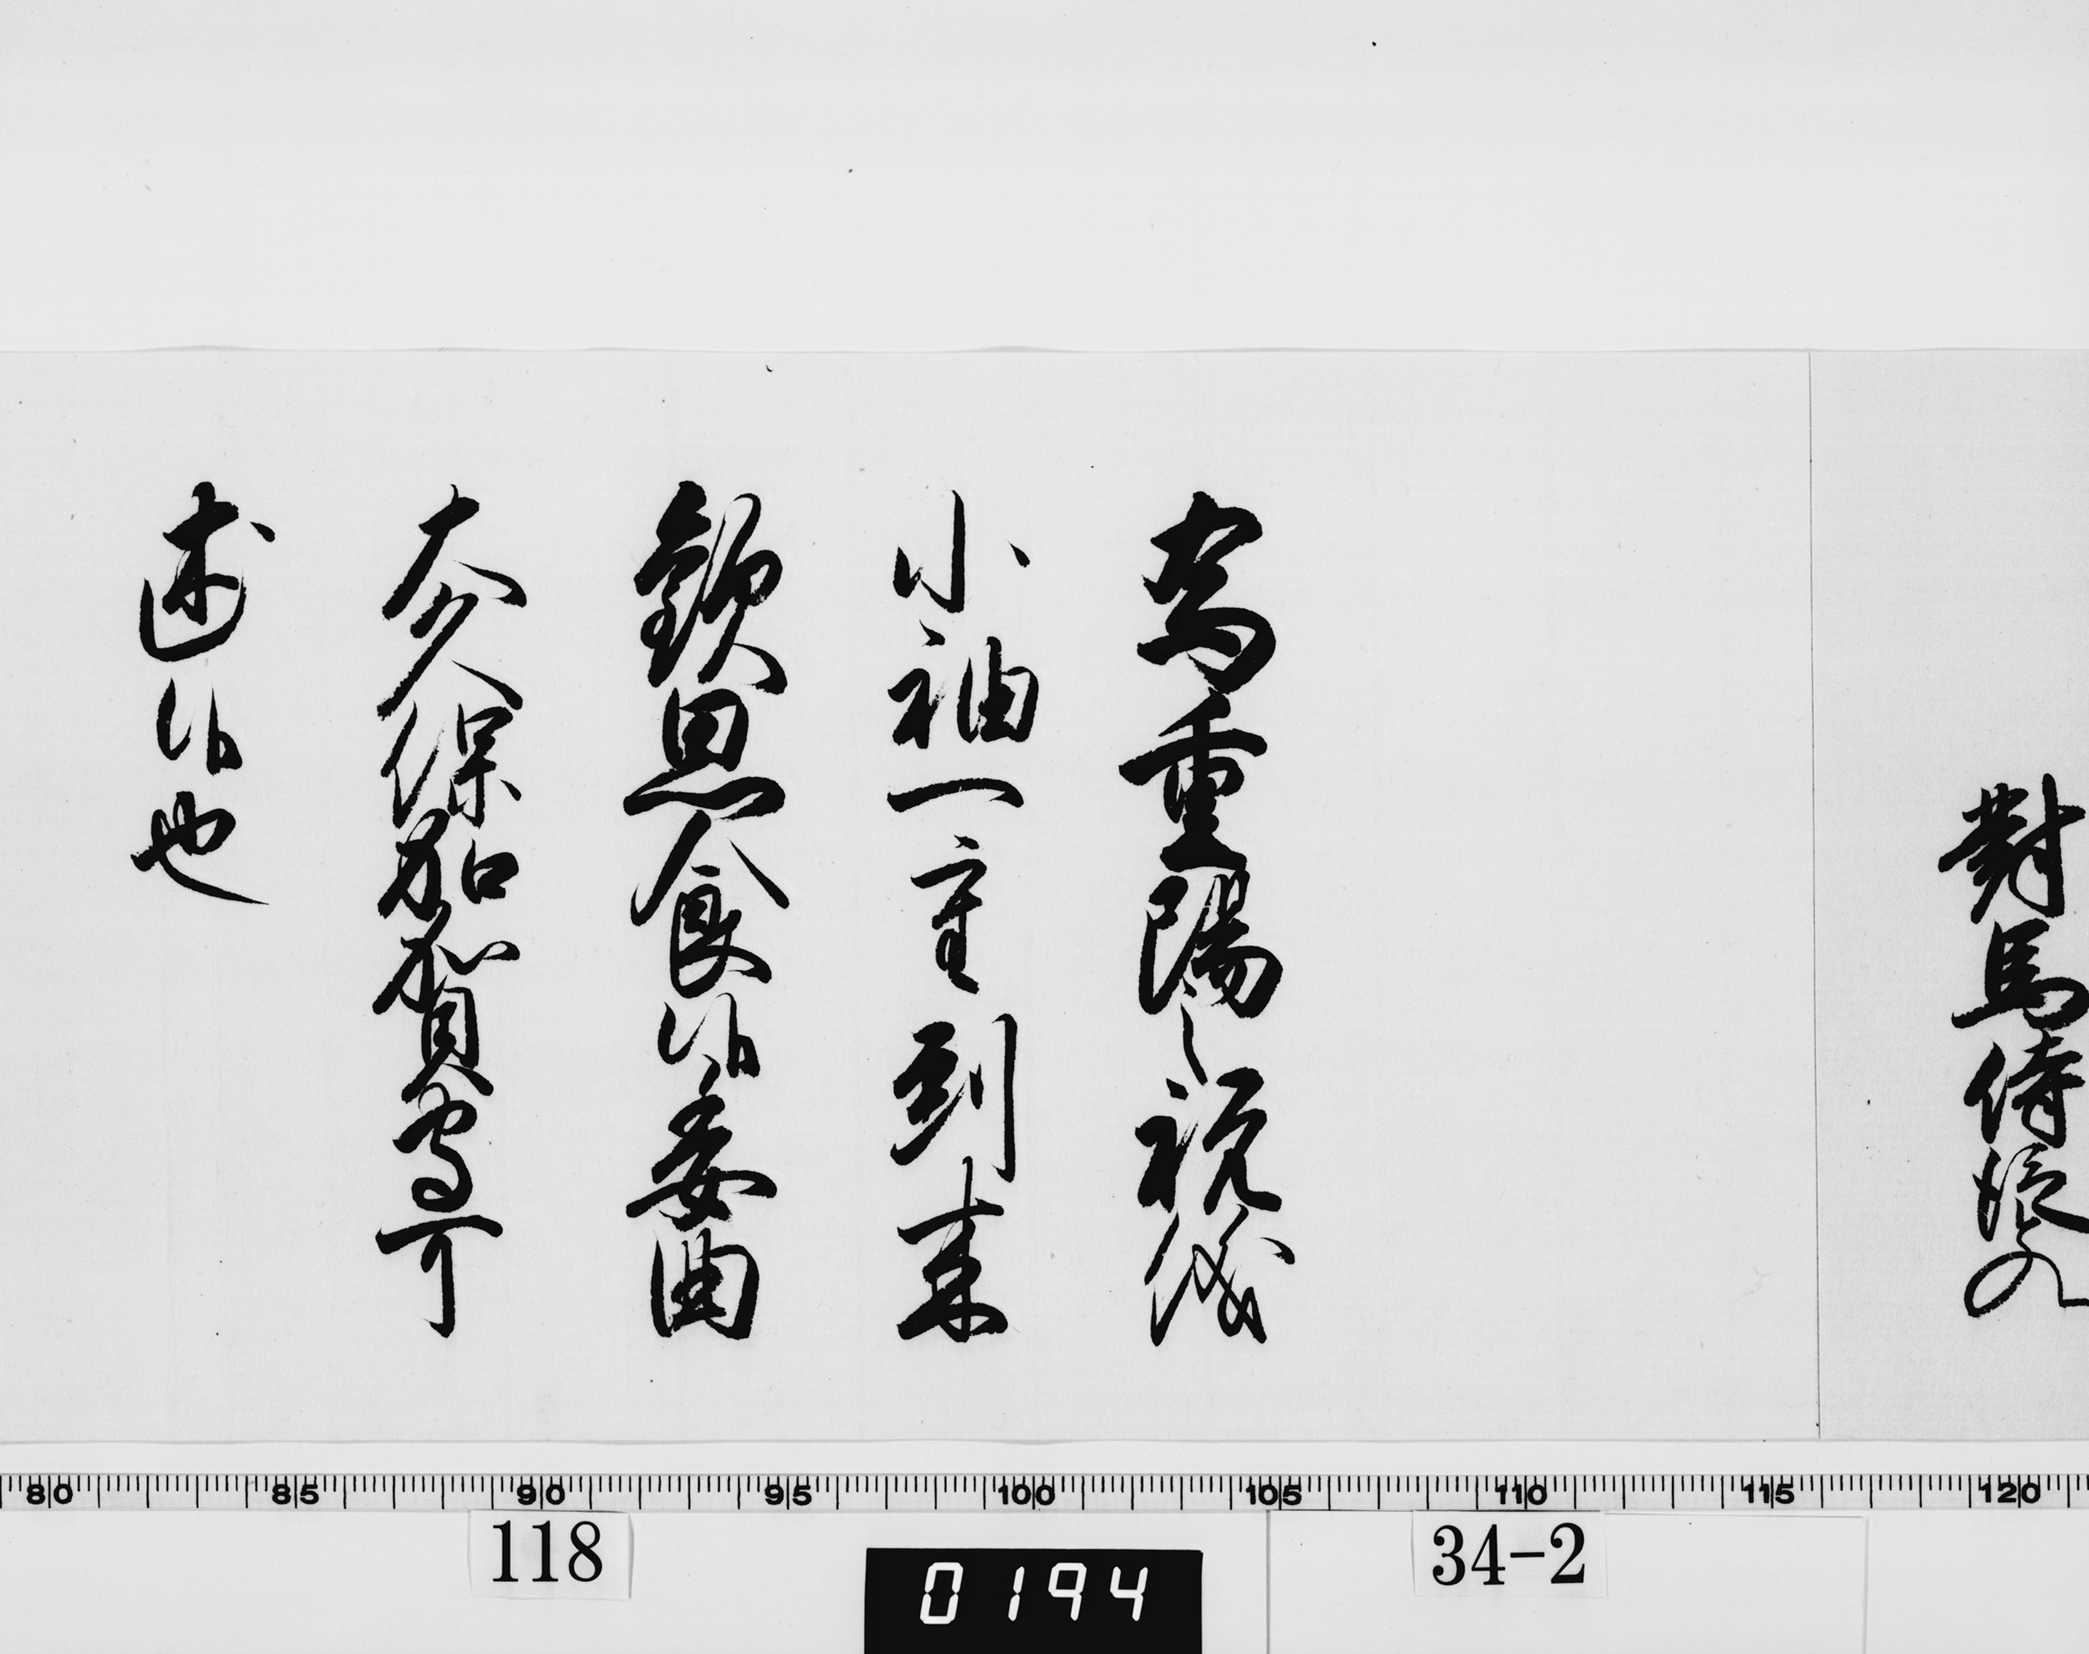 對馬侍従殿
為重陽之祝儀
小袖一重到来
歓思食候委曲
大久保加賀守可
述候也
80 85 90 95 100 105 110 115 120
118
34-2
0194